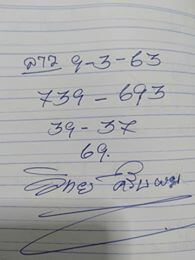 ลาว 9-3-63
739-693
39-37
69.